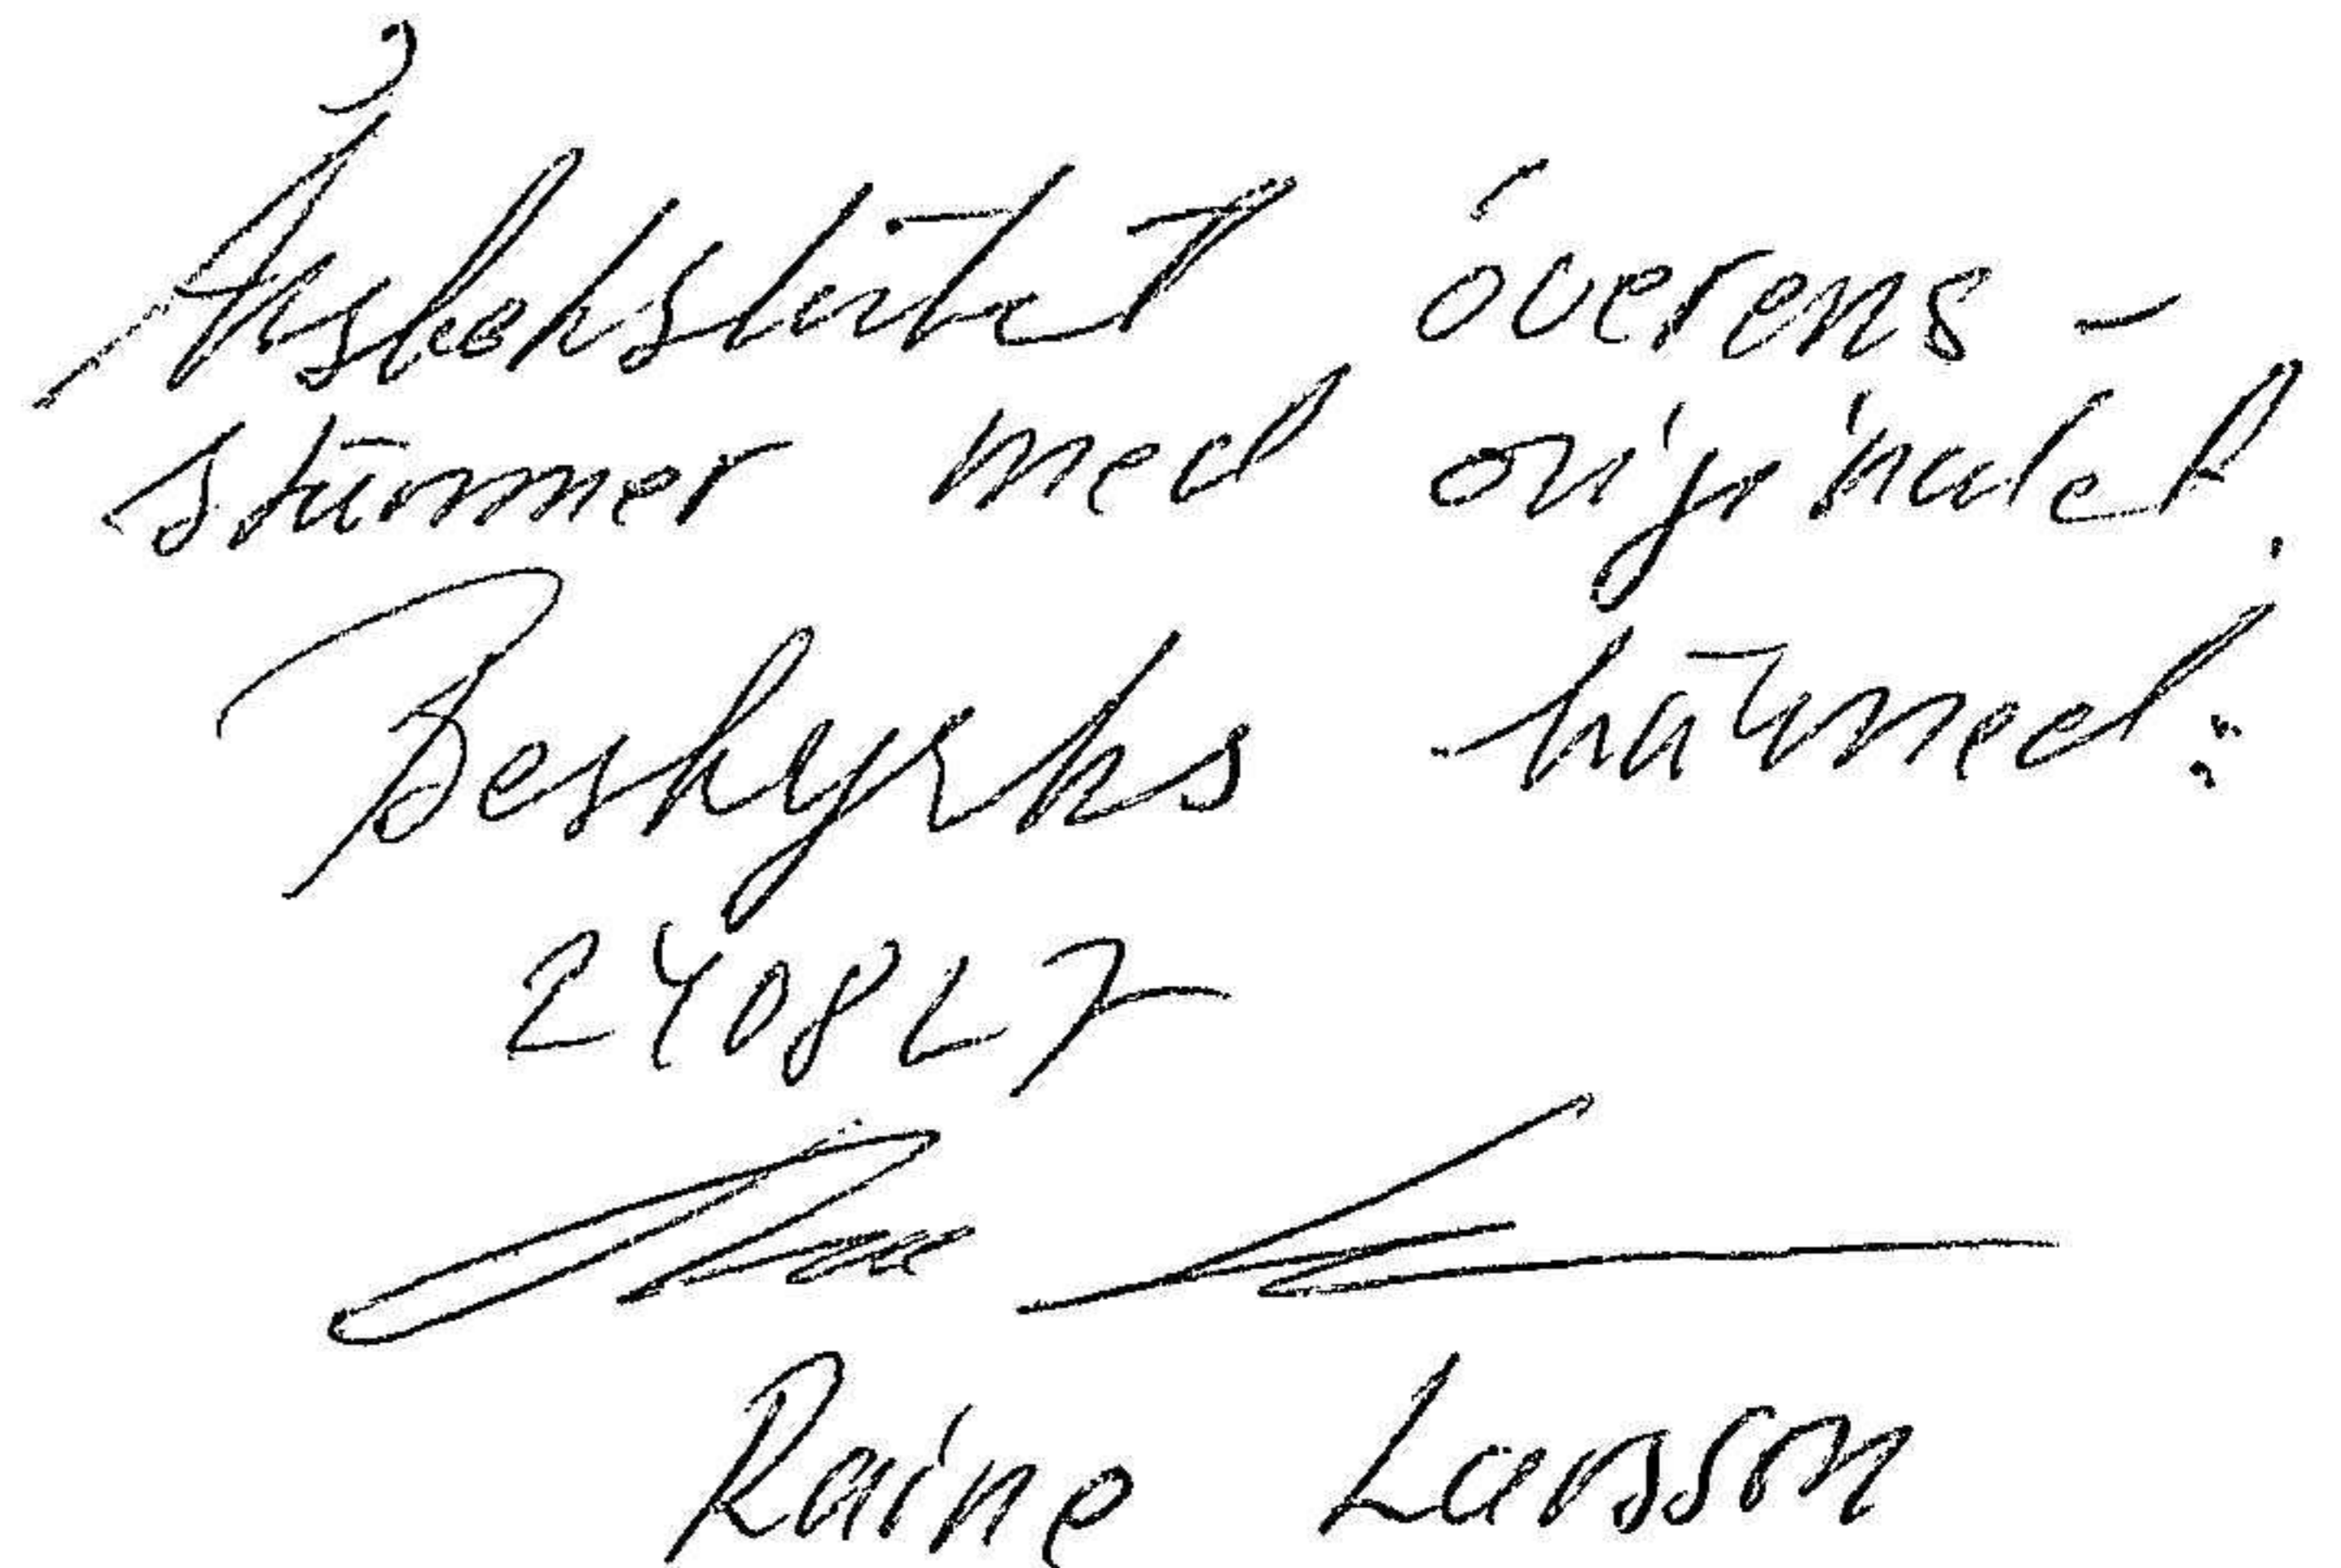 Årsbokslutet överens-
stämmer med originalet.
Beskyrks härmed:
240827
Raine Larsson